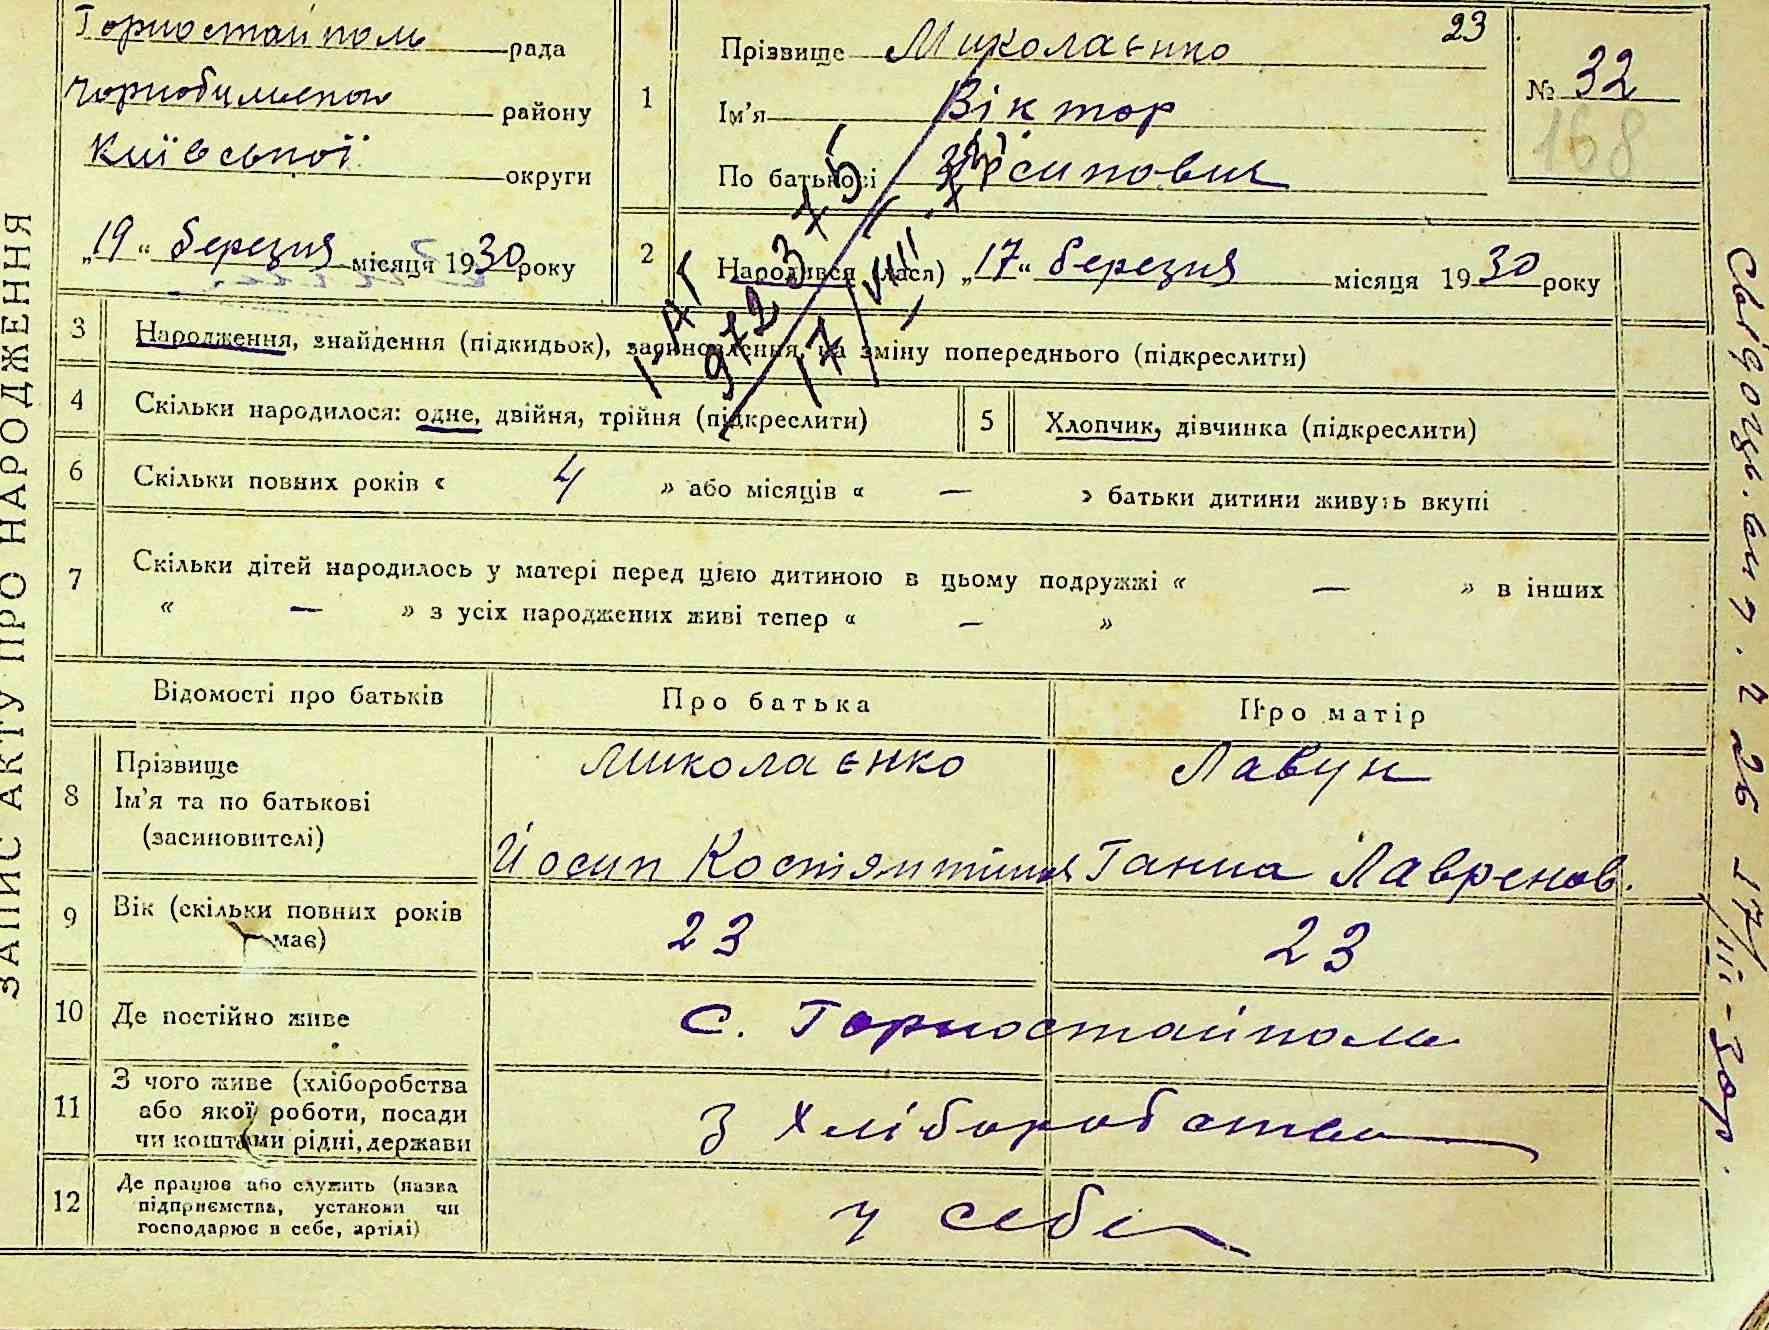 ЗАПИС АКТУ ПРО НАРОДЖЕННЯ
Горностайполь рада
Чорнобильського району
Київської округи
„19“ березня місяця 1930 року
23
1 Прізвище Миколаєнко
Ім'я Віктор
По батькові Йосипович
№ 32
168
2 Народився (лася) „17“ березня місяця 1930 року
3 Народження, знайдення (підкидьок), засиновлення, на зміну попереднього (підкреслити)
4 Скільки народилося: одне, двійня, трійня (підкреслити)
5 Хлопчик, дівчинка (підкреслити)
6 Скільки повних років « 4 » або місяців « — » батьки дитини живуть вкупі
7 Скільки дітей народилось у матері перед цією дитиною в цьому подружжі « — » в інших
« — » з усіх народжених живі тепер « — »
Відомості про батьків Про батька Про матір
8 Прізвище
Ім'я та по батькові
(засиновителі)
Миколаєнко
Йосип
Лавун
Ганна Лавренов.
9 Вік (скільки повних років
має)
23 23
10 Де постійно живе с. Горностайполь
11 З чого живе (хліборобства
або якої роботи, посади
чи коштами рідні, держави
З хліборобства
12 Де працює або служить (назва
підприємства, установи чи
господарює в себе, артілі)
у себе